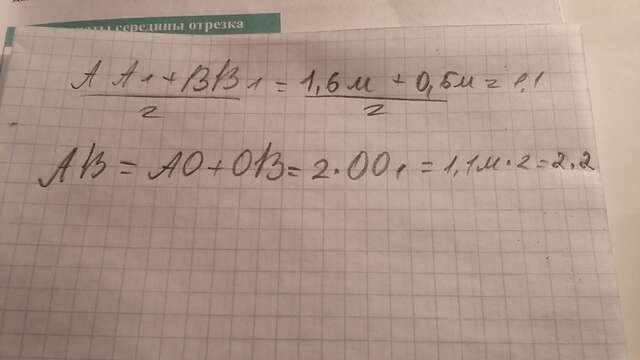 середины отрезка
AA₁+BB₁/2 = 1,6м + 0,6м/2 = 1,1
AB = AO+OB = 2·OO₁ = 1,1м·2=2.2